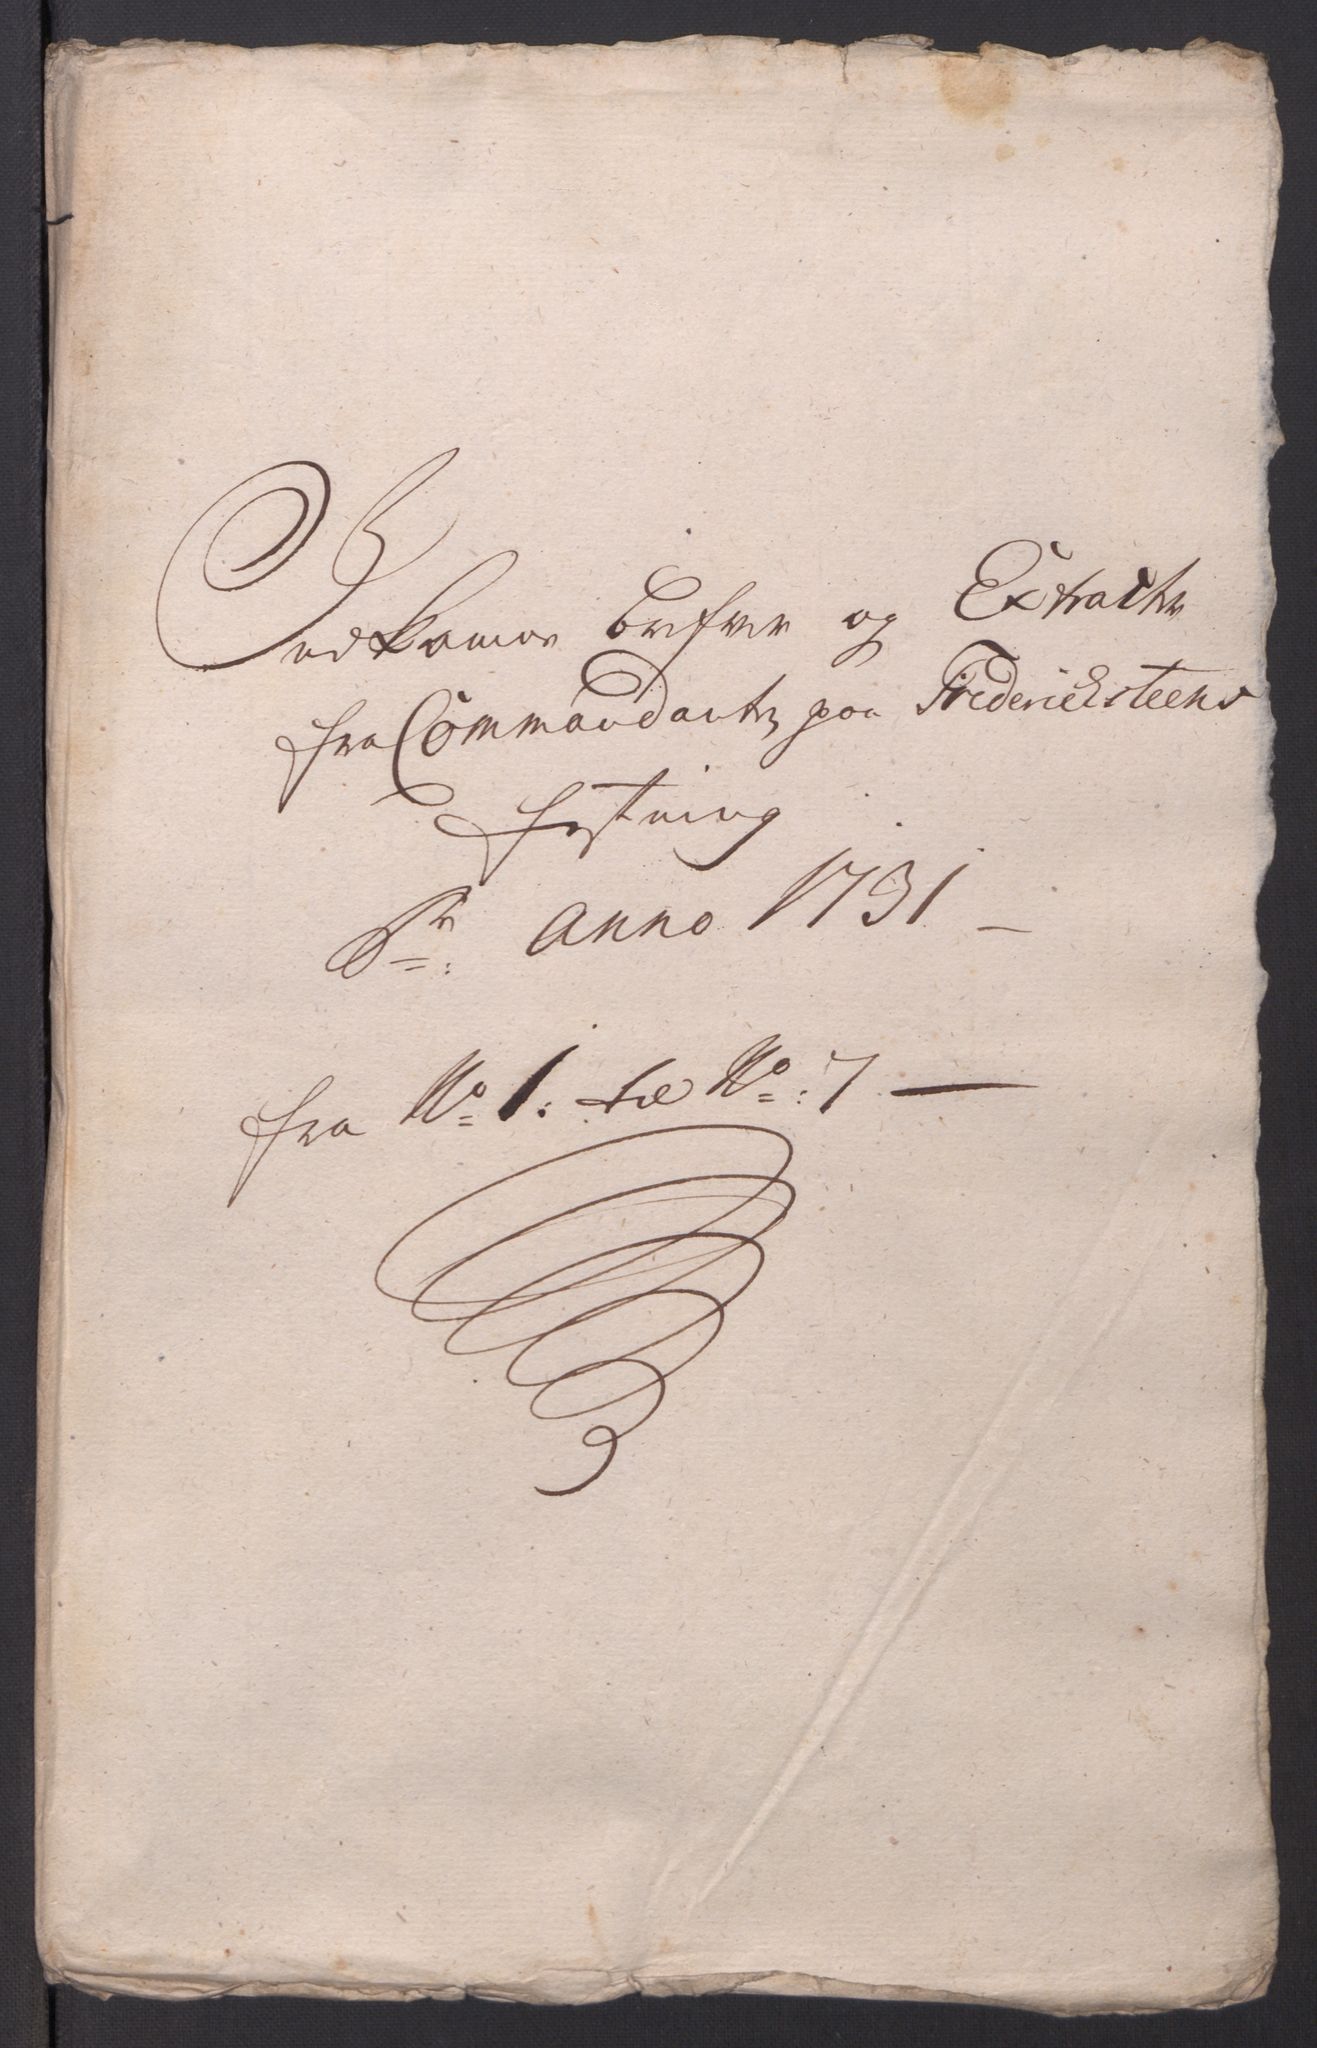 Indkomne brefver og Extracter
fra Commandantz paa Fredericksteens
festning
Pr: anno 1731 –
fra No 1: til No: 7 —